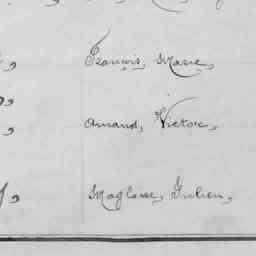 François, Marie,
Amand, Victor,
Magloire, Julien,